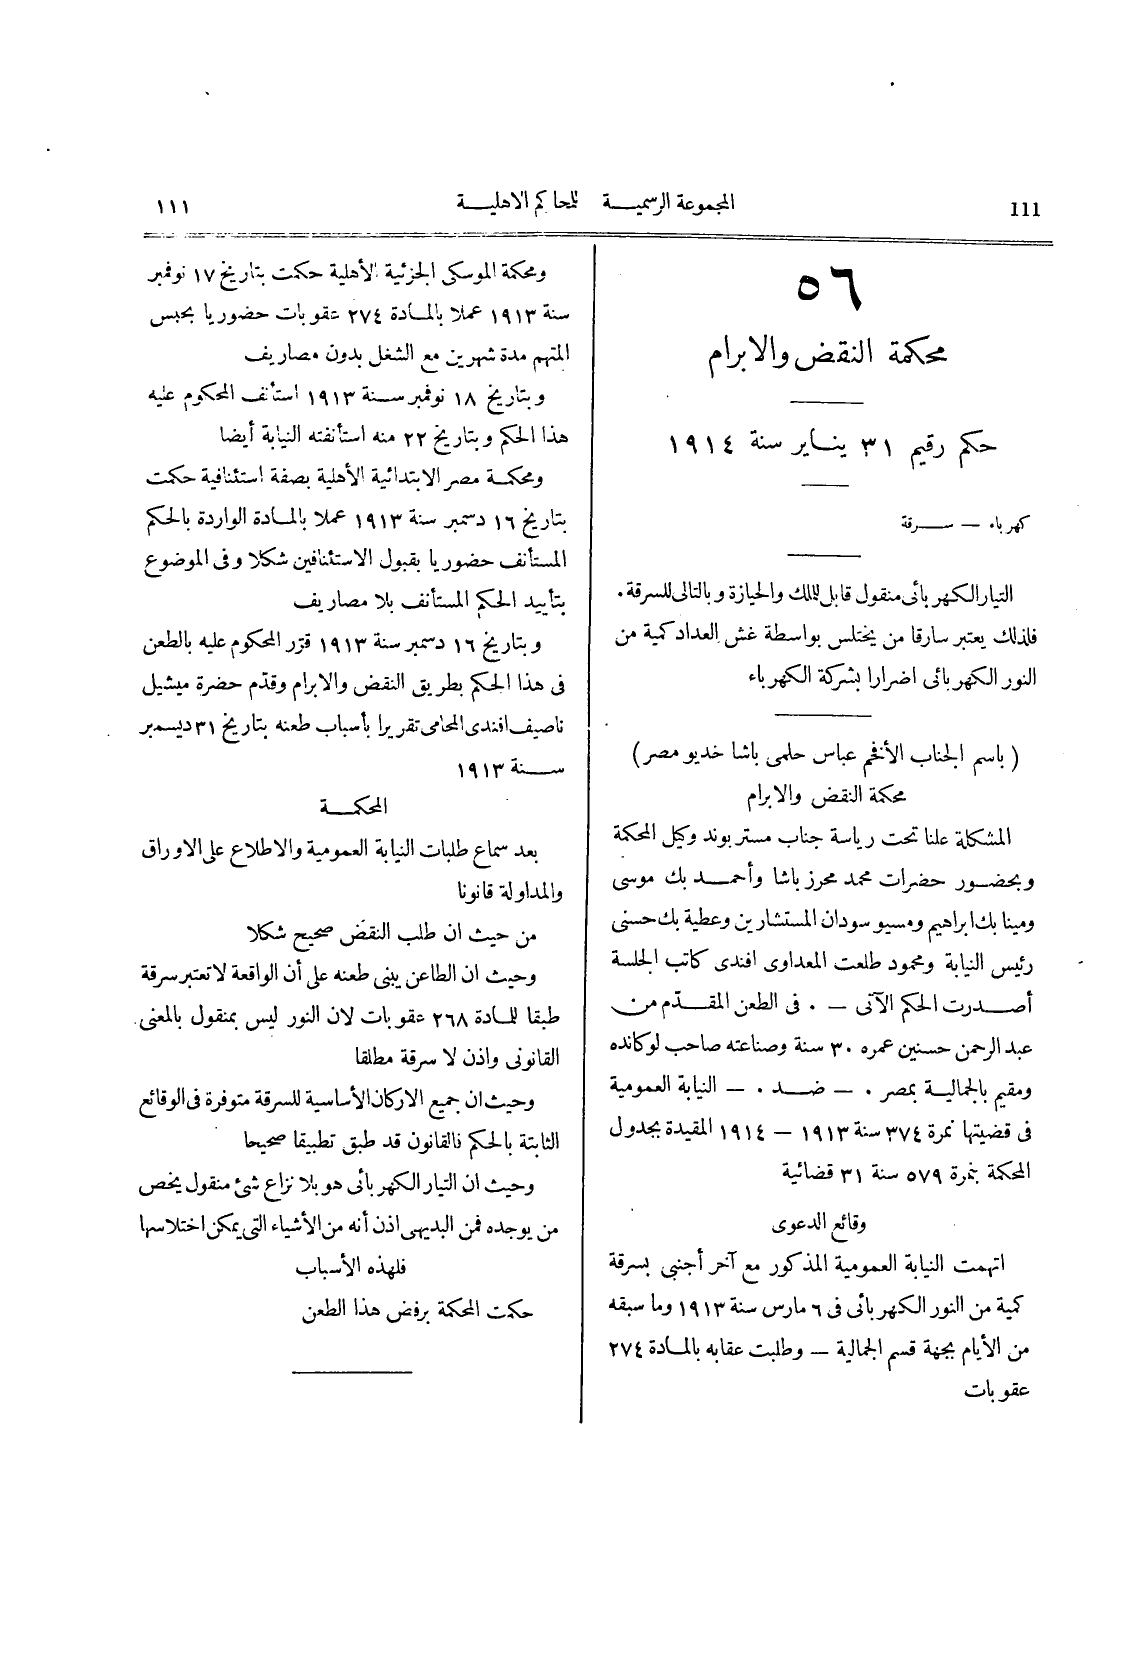 111
المجموعة الرسمية للمحاكم الاهلية
١١١
٥٦
محكمة النقض والابرام
حكم رقيم ٣١ يناير سنة ١٩١٤
كهرباء — سرقة
التيار الكهربائى منقول قابل للملك والحيازة وبالتالى للسرقة.
فلذلك يعتبر سارقا من يختلس بواسطة غش العداد كمية من
النور الكهربائى اضرارا بشركة الكهرباء
( باسم الجناب الأفخم عباس حلمى باشا خديو مصر )
محكمة النقض والابرام
المشكلة علنا تحت رياسة جناب مستر بوند وكيل المحكمة
وبحضور حضرات محمد محرز باشا وأحمد بك موسى
ومينا بك ابراهيم ومسيو سودان المستشارين وعطية بك حسنى
رئيس النيابة ومحمود طلعت المعداوى افندى كاتب الجلسة
أصدرت الحكم الآتى — . فى الطعن المقدّم من
عبد الرحمن حسنين عمره ٣٠ سنة وصناعته صاحب لوكانده
ومقيم بالجمالية بمصر . — ضد . — النيابة العمومية
فى قضيتها نمرة ٣٧٤ سنة ١٩١٣ — ١٩١٤ المقيدة بجدول
المحكمة بنمرة ٥٧٩ سنة ٣١ قضائية
وقائع الدعوى
اتهمت النيابة العمومية المذكور مع آخر أجنبى بسرقة
كمية من النور الكهربائى فى ٦ مارس سنة ١٩١٣ وما سبقه
من الأيام بجهة قسم الجمالية — وطلبت عقابه بالمادة ٢٧٤
عقوبات
ومحكمة الموسكى الجزئية الأهلية حكمت بتاريخ ١٧ نوفمبر
سنة ١٩١٣ عملا بالمادة ٢٧٤ عقوبات حضوريا بحبس
المتهم مدة شهرين مع الشغل بدون مصاريف
وبتاريخ ١٨ نوفمبر سنة ١٩١٣ استأنف المحكوم عليه
هذا الحكم وبتاريخ ٢٢ منه استأنفته النيابة أيضا
ومحكمة مصر الابتدائية الأهلية بصفة استئنافية حكمت
بتاريخ ١٦ دسمبر سنة ١٩١٣ عملا بالمادة الواردة بالحكم
المستأنف حضوريا بقبول الاستئنافين شكلا وفى الموضوع
بتأييد الحكم المستأنف بلا مصاريف
وبتاريخ ١٦ دسمبر سنة ١٩١٣ قرّر المحكوم عليه بالطعن
فى هذا الحكم بطريق النقض والابرام وقدّم حضرة ميشيل
ناصيف افندى المحامى تقريرا بأسباب طعنه بتاريخ ٣١ ديسمبر
سنة ١٩١٣
المحكمة
بعد سماع طلبات النيابة العمومية والاطلاع على الاوراق
والمداولة قانونا
من حيث ان طلب النقض صحيح شكلا
وحيث ان الطاعن يبنى طعنه على أن الواقعة لا تعتبر سرقة
طبقا للمادة ٢٦٨ عقوبات لان النور ليس بمنقول بالمعنى
القانونى واذن لا سرقة مطلقا
وحيث ان جميع الاركان الأساسية للسرقة متوفرة فى الوقائع
الثابتة بالحكم فالقانون قد طبق تطبيقا صحيحا
وحيث ان التيار الكهربائى هو بلا نزاع شئ منقول يخص
من يوجده فمن البديهى اذن أنه من الأشياء التى يمكن اختلاسها
فلهذه الأسباب
حكمت المحكمة برفض هذا الطعن